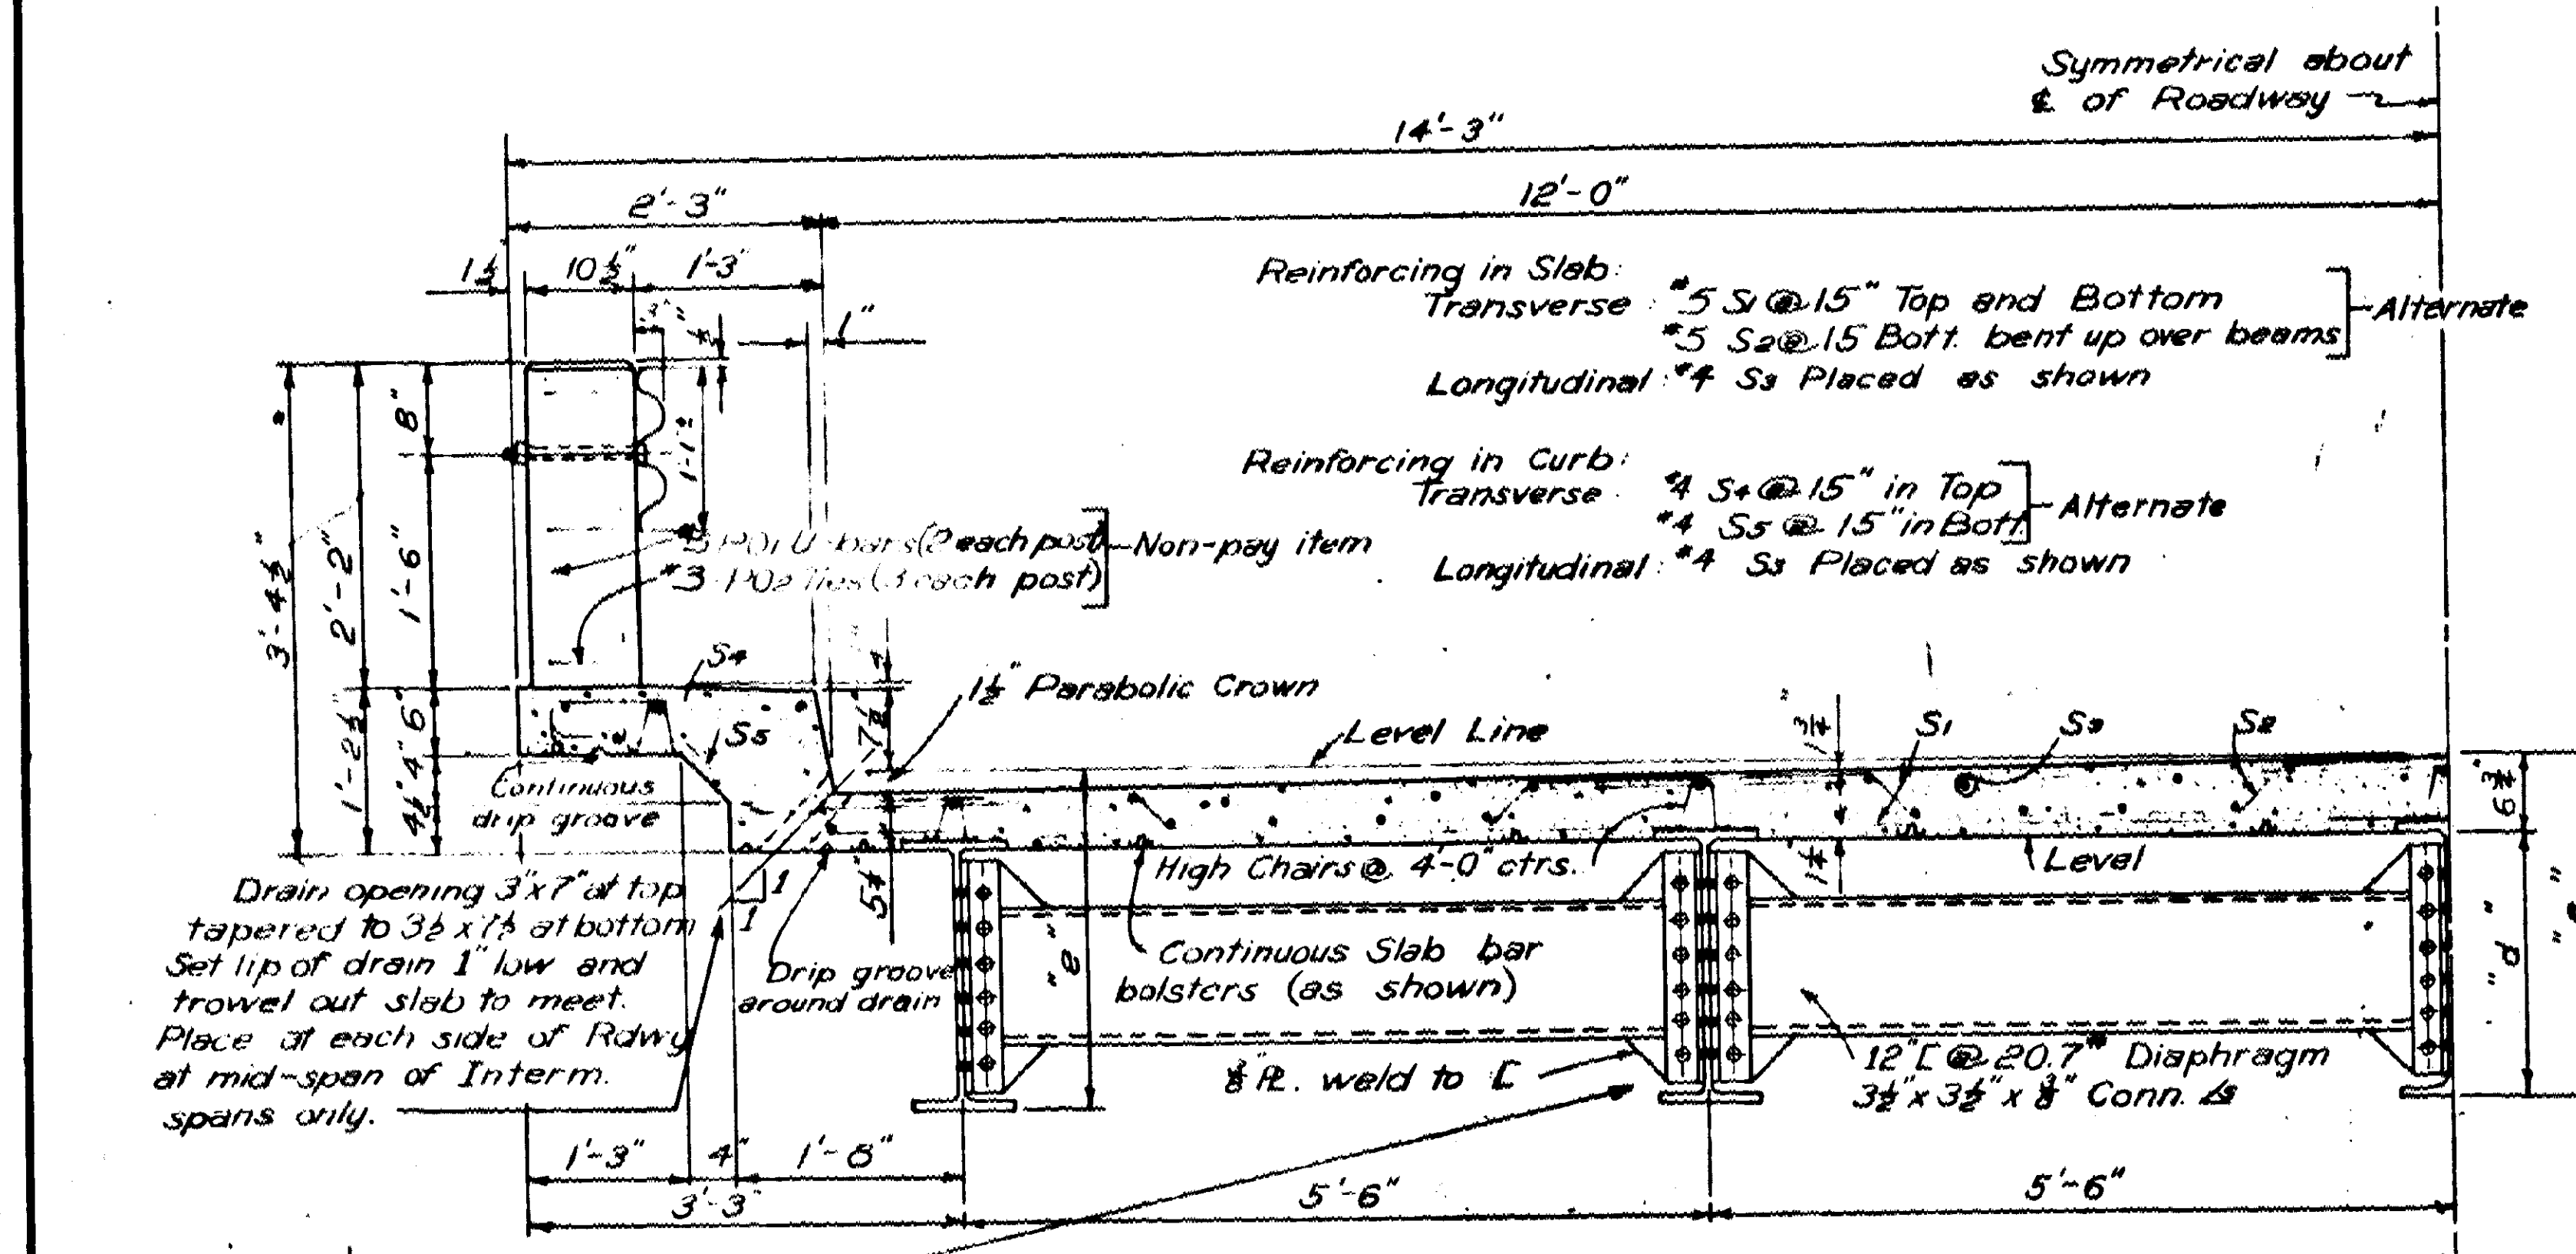 Symmetrical about
℄ of Roadway
14'-3"
2'-3"
12'-0"
1½
10½"
1'-3"
1"
Reinforcing in Slab:
Transverse : #5 S1 @ 15" Top and Bottom
#5 S2 @ 15 Bott. bent up over beams
Alternate
Longitudinal : #4 S3 Placed as shown
8"
1'-1½
Reinforcing in Curb:
Transverse : #4 S4 @ 15" in Top
#4 S5 @ 15" in Bott.
Alternate
Longitudinal : #4 S3 Placed as shown
U-bars (2 each post)
#3 PO2 Ties (3 each post)
Non-pay item
3'-4½"
2'-2"
1'-6"
S4
1½" Parabolic Crown
Level Line
S1
S3
S2
S5
7½"
1'-2½"
6"
4"
4½"
6¾"
Continuous
drip groove
5¼"
High Chairs @ 4'-0" ctrs.
1¼
Level
Drain opening 3"x7" at top
tapered to 3½ x 7½ at bottom
Set lip of drain 1" low and
trowel out slab to meet.
Place at each side of Rdwy
at mid-span of Interm.
spans only.
1
1
Drip groove
around drain
"e"
Continuous Slab bar
bolsters (as shown)
"d"
⅜" PL. weld to [
12" [ @ 20.7# Diaphragm
3½" x 3½" x ⅜" Conn. ∠s
1'-3"
4"
1'-8"
3'-3"
5'-6"
5'-6"